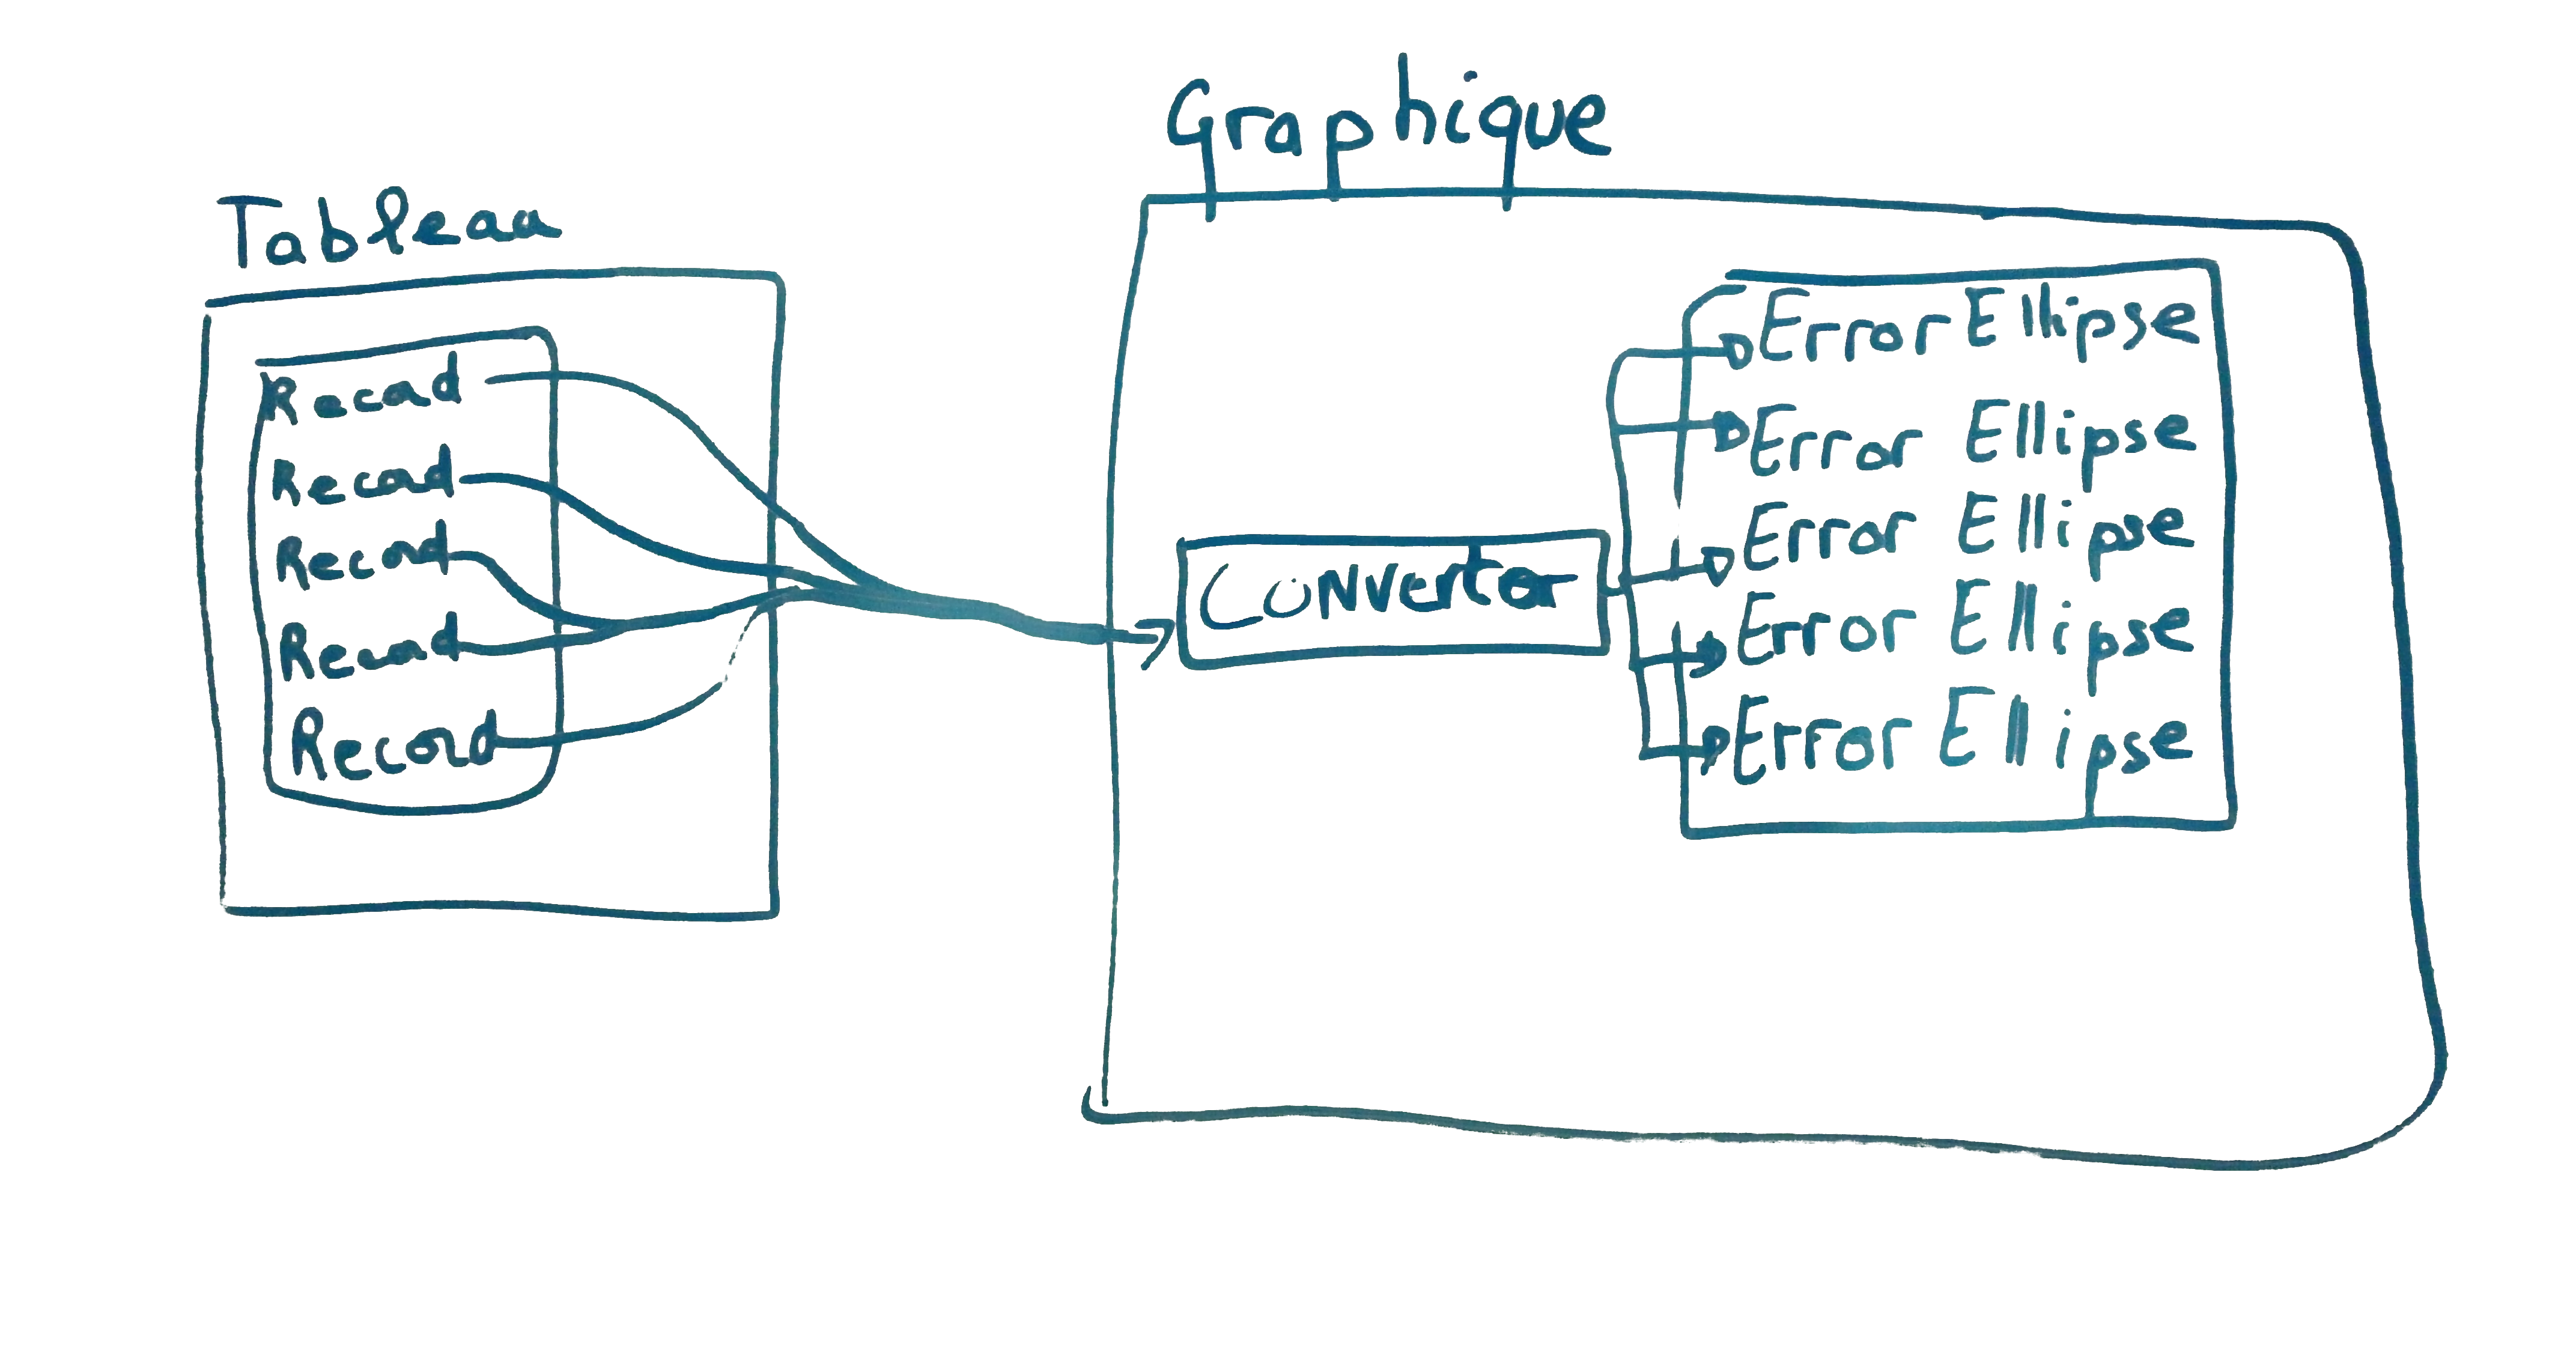 Graphique
Tableau
Record
Record
Record
Record
Record
Convertor
Error Ellipse
Error Ellipse
Error Ellipse
Error Ellipse
Error Ellipse